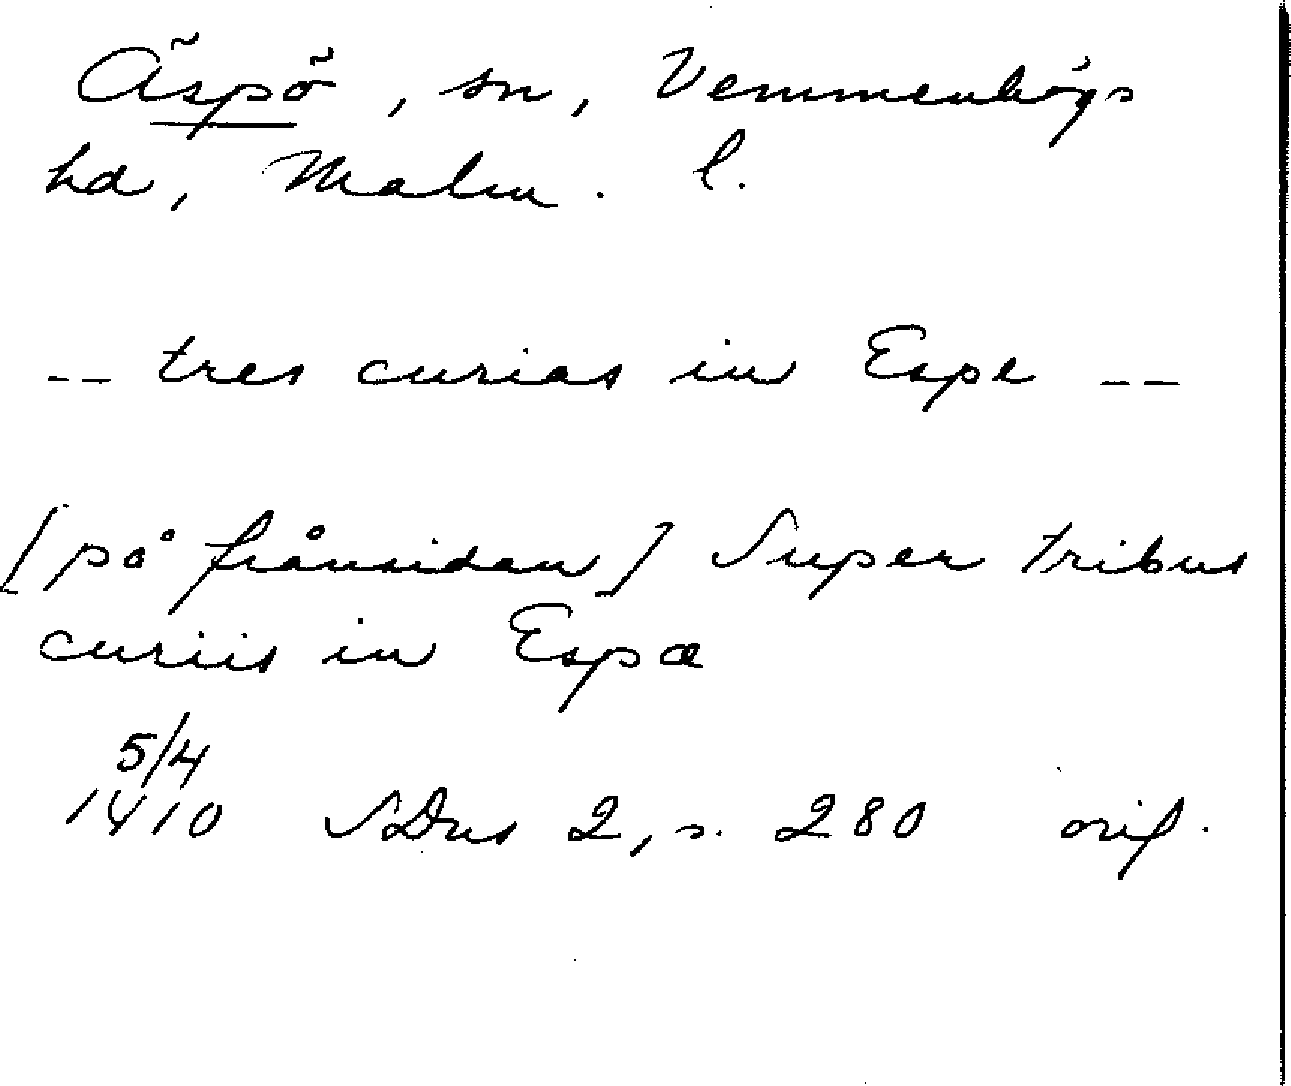 Äspö, sn, Vemmenhögs
hd, Malm. l.
-- tres curias in Espe --
[på frånsidan] Super tribus
curiis in Espæ
5/4
1410 SDns 2, s. 280 orig.